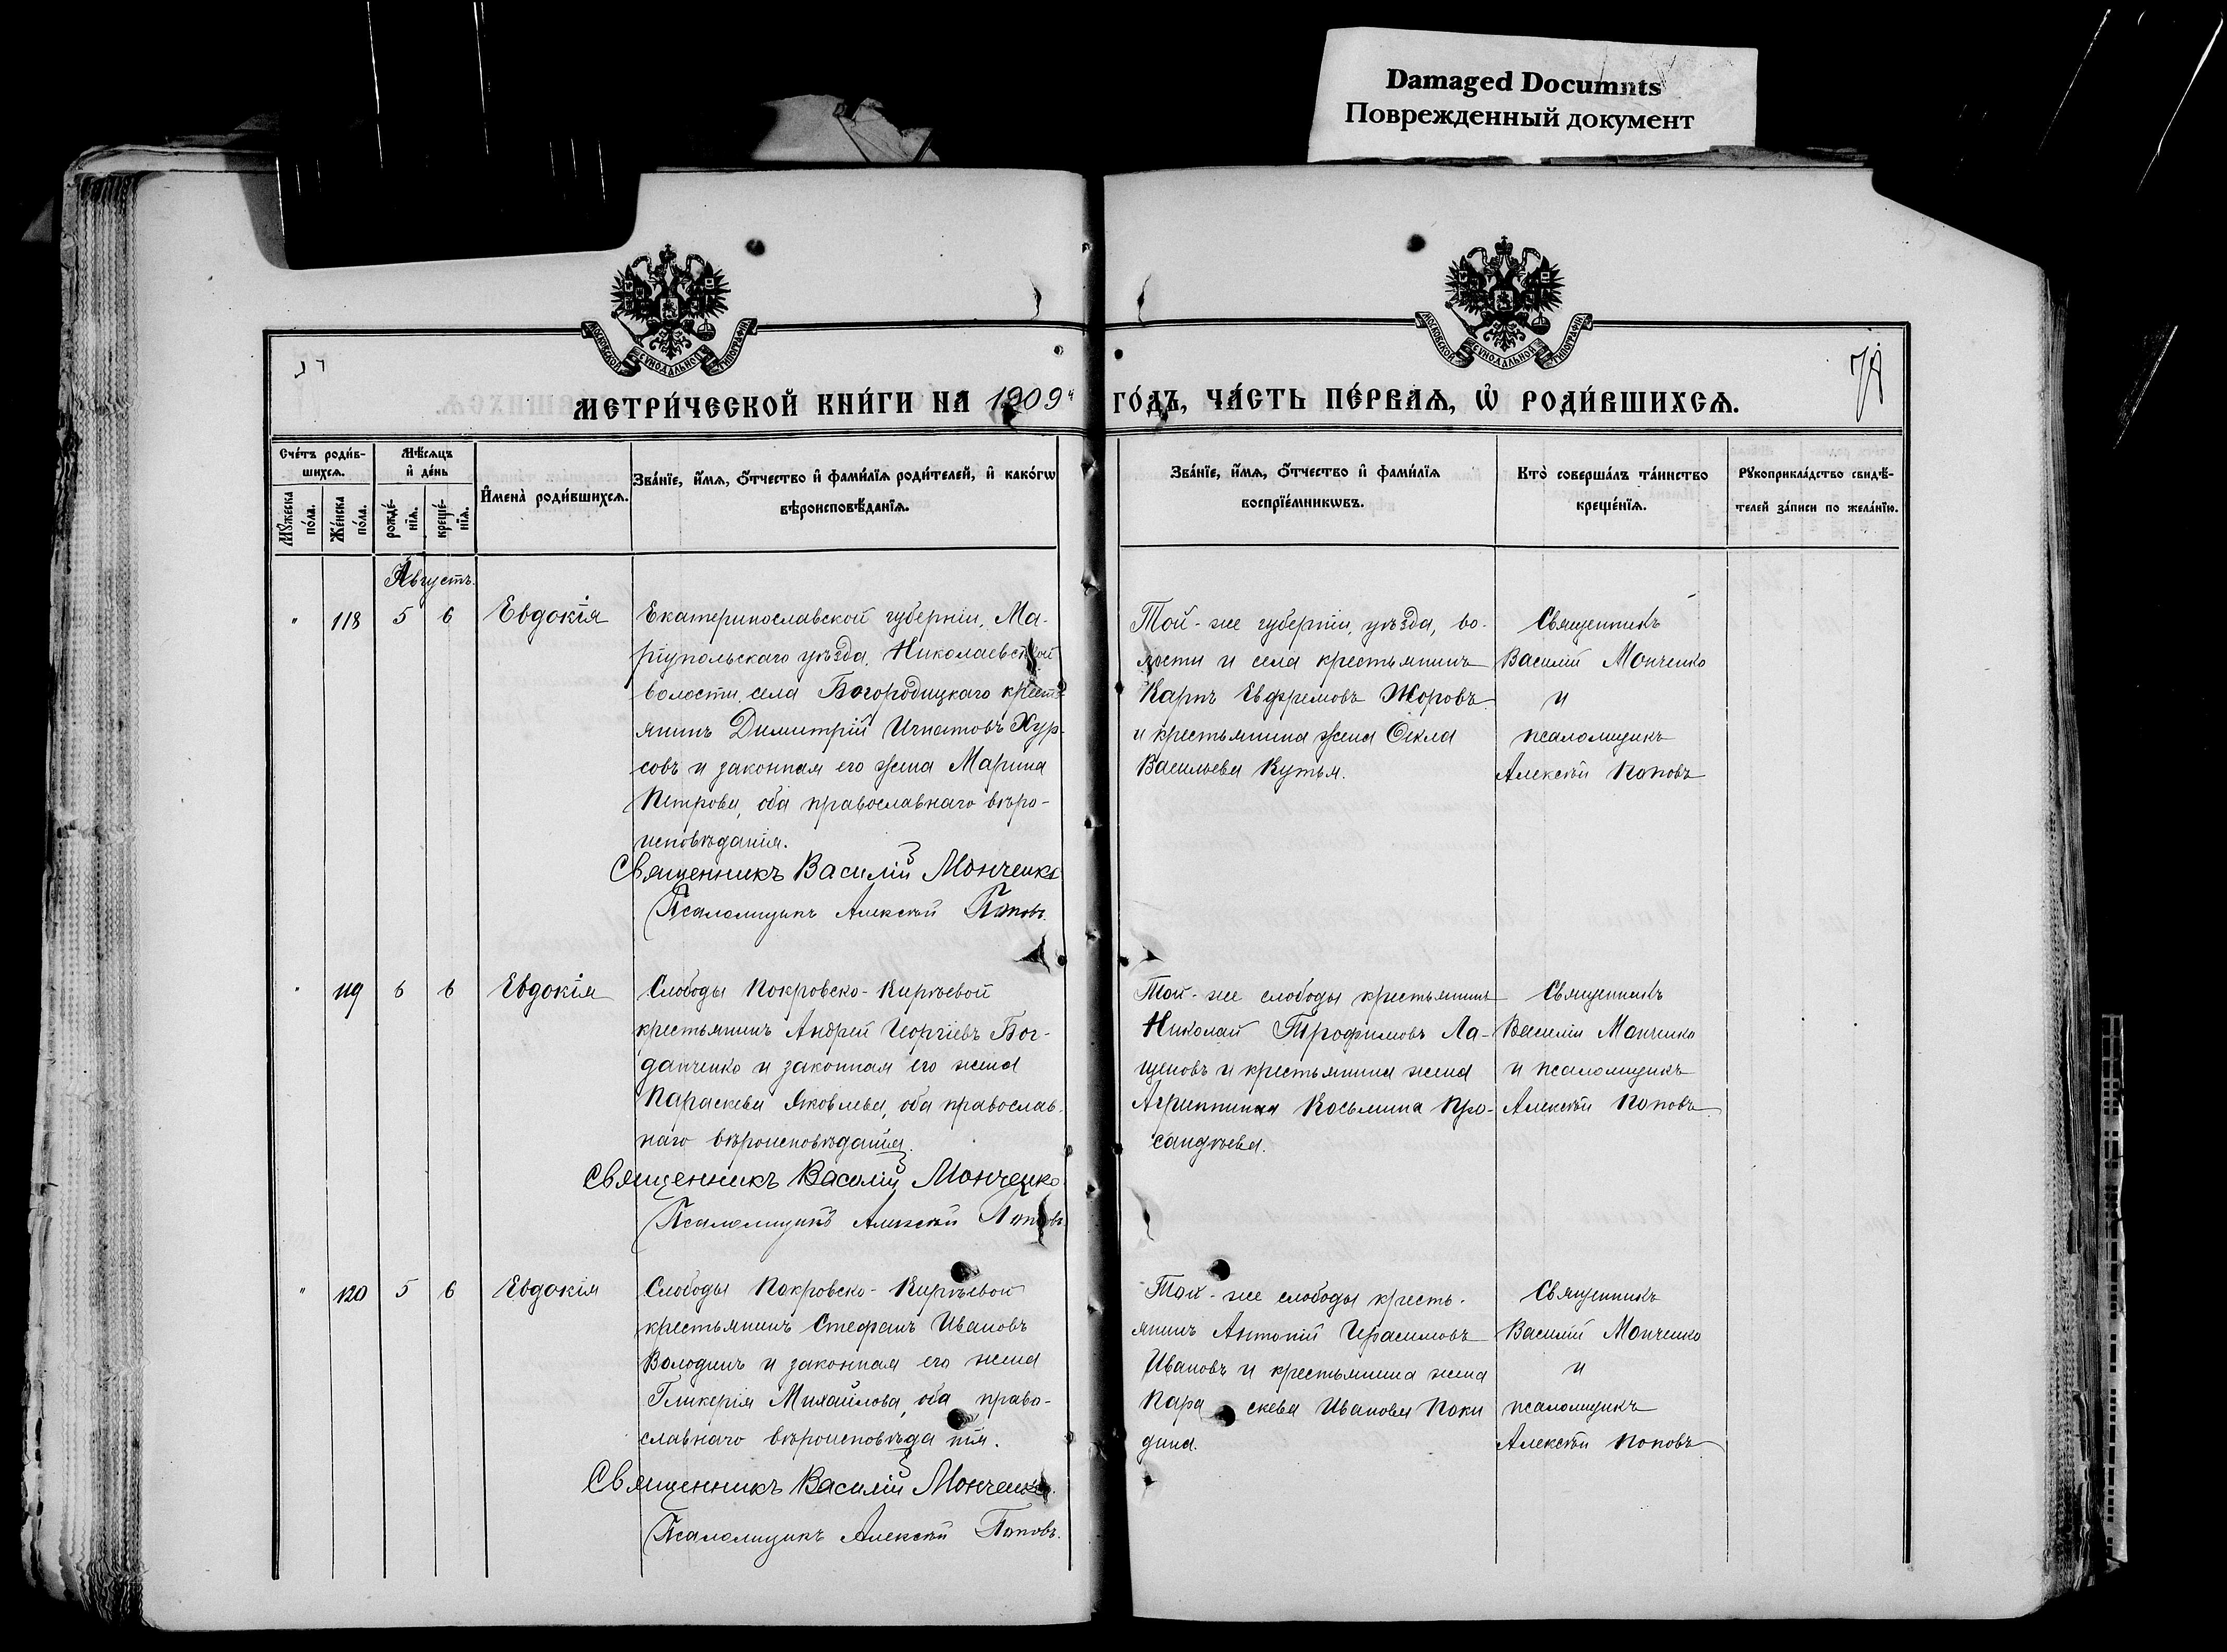 Damaged Documnts
Поврежденный документ
МОСКОВСКОЙ СѴНОДАЛЬНОЙ ТИПОГРАФІИ
МОСКОВСКОЙ СѴНОДАЛЬНОЙ ТИПОГРАФІИ
МЕТРИ́ЧЕСКОЙ КНИ́ГИ НА 1909й ГО́ДЪ, ЧА́СТЬ ПЕ́РВАѦ, Ѡ РОДИ́ВШИХСѦ.
Сче́тъ роди́в-
шихсѧ.
Мꙋ́жеска по́ла.
Же́нска по́ла.
Мѣ́сѧцъ
и҆ де́нь
рожде́-
нїѧ.
креще́-
нїѧ.
И҆мена̀ роди́вшихсѧ.
Зва́нїе, и҆́мѧ, ѻ҆́тчество и҆ фами́лїѧ роди́телей, и҆ како́гѡ
вѣроисповѣ́данїѧ.
Зва́нїе, и҆́мѧ, ѻ҆́тчество и҆ фами́лїѧ
воспрїе́мникѡвъ.
Кто̀ соверша́лъ та́инство
креще́нїѧ.
Рꙋкоприкла́дство свидѣ́-
телей за́писи по жела́нїю.
Августъ.
" 118 5 6 Евдокія
Екатеринославской губерніи, Ма-
ріупольскаго уѣзда, Николаевской
волости, села Богородицкаго крестъ
янинъ Димитрій Игнатовъ Хур-
совъ и законная его жена Марина
Петрова, оба православнаго вѣро-
исповѣданія.
Священникъ Василій Монченко
Псаломщикъ Алексѣй Поповъ.
Той-же губерніи, уѣзда, во-
лости и села крестьянинъ
Карпъ Евфремовъ Жоровъ
и крестьянина жена Ѳекла
Васильева Кутья.
Священникъ
Василій Монченко
и
псаломщикъ
Алексѣй Поповъ
" 119 6 6 Евдокія
Слободы Покровско-Кирѣевой
крестьянинъ Андрей Георгіевъ Бог-
данченко и законная его жена
Параскева Яковлева, оба православ-
наго вѣроисповѣданія.
Священникъ Василій Мончецко
Псаломщикъ Алексѣй Поповъ
Той-же слободы крестьянинъ
Николай Трофимовъ Ла-
щеновъ и крестьянина жена
Агриппина Косьмина Про-
сандѣева.
Священникъ
Василій Монченко
и псаломщикъ
Алексѣй Поповъ
" 120 5 6 Евдокія
Слободы Покровско-Кирѣевой
крестьянинъ Стефанъ Ивановъ
Володинъ и законная его жена
Гликерія Михайлова, оба право-
славнаго вѣроисповѣданія.
Священникъ Василій Монченко.
Псаломщикъ Алексѣй Поповъ.
Той-же слободы кресть-
янинъ Антоній Герасимовъ
Ивановъ и крестьянина жена
Параскева Иванова Поки
дина.
Священникъ
Василій Монченко
и
псаломщикъ
Алексѣй Поповъ